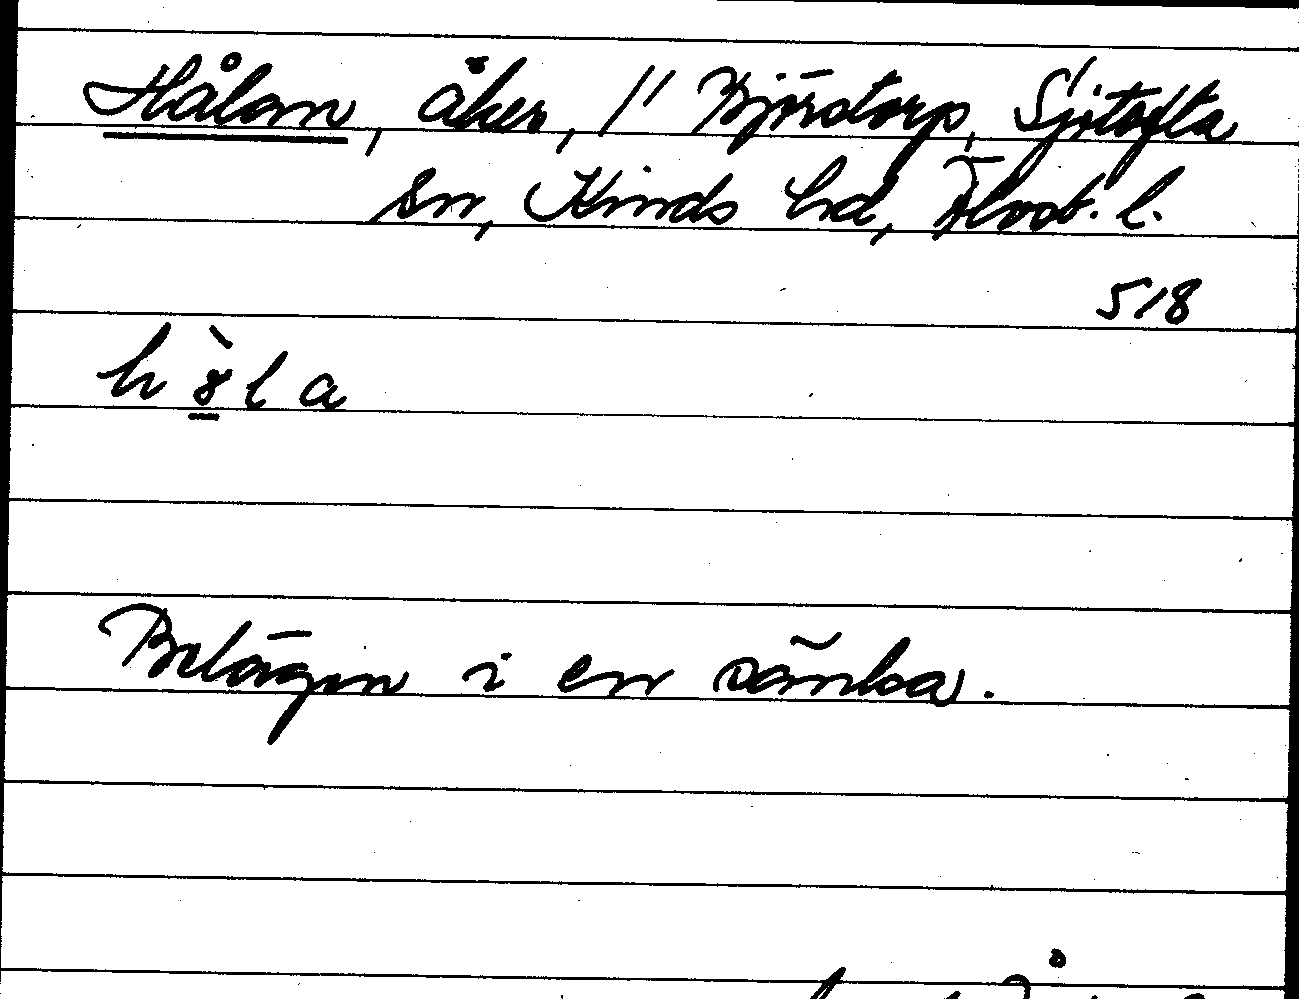 Hålan, åker, 1/1 Björstorp, Sjötofta
sn, Kinds hd, Älvsb. l.
518
hòla
Belägen i en sänka.